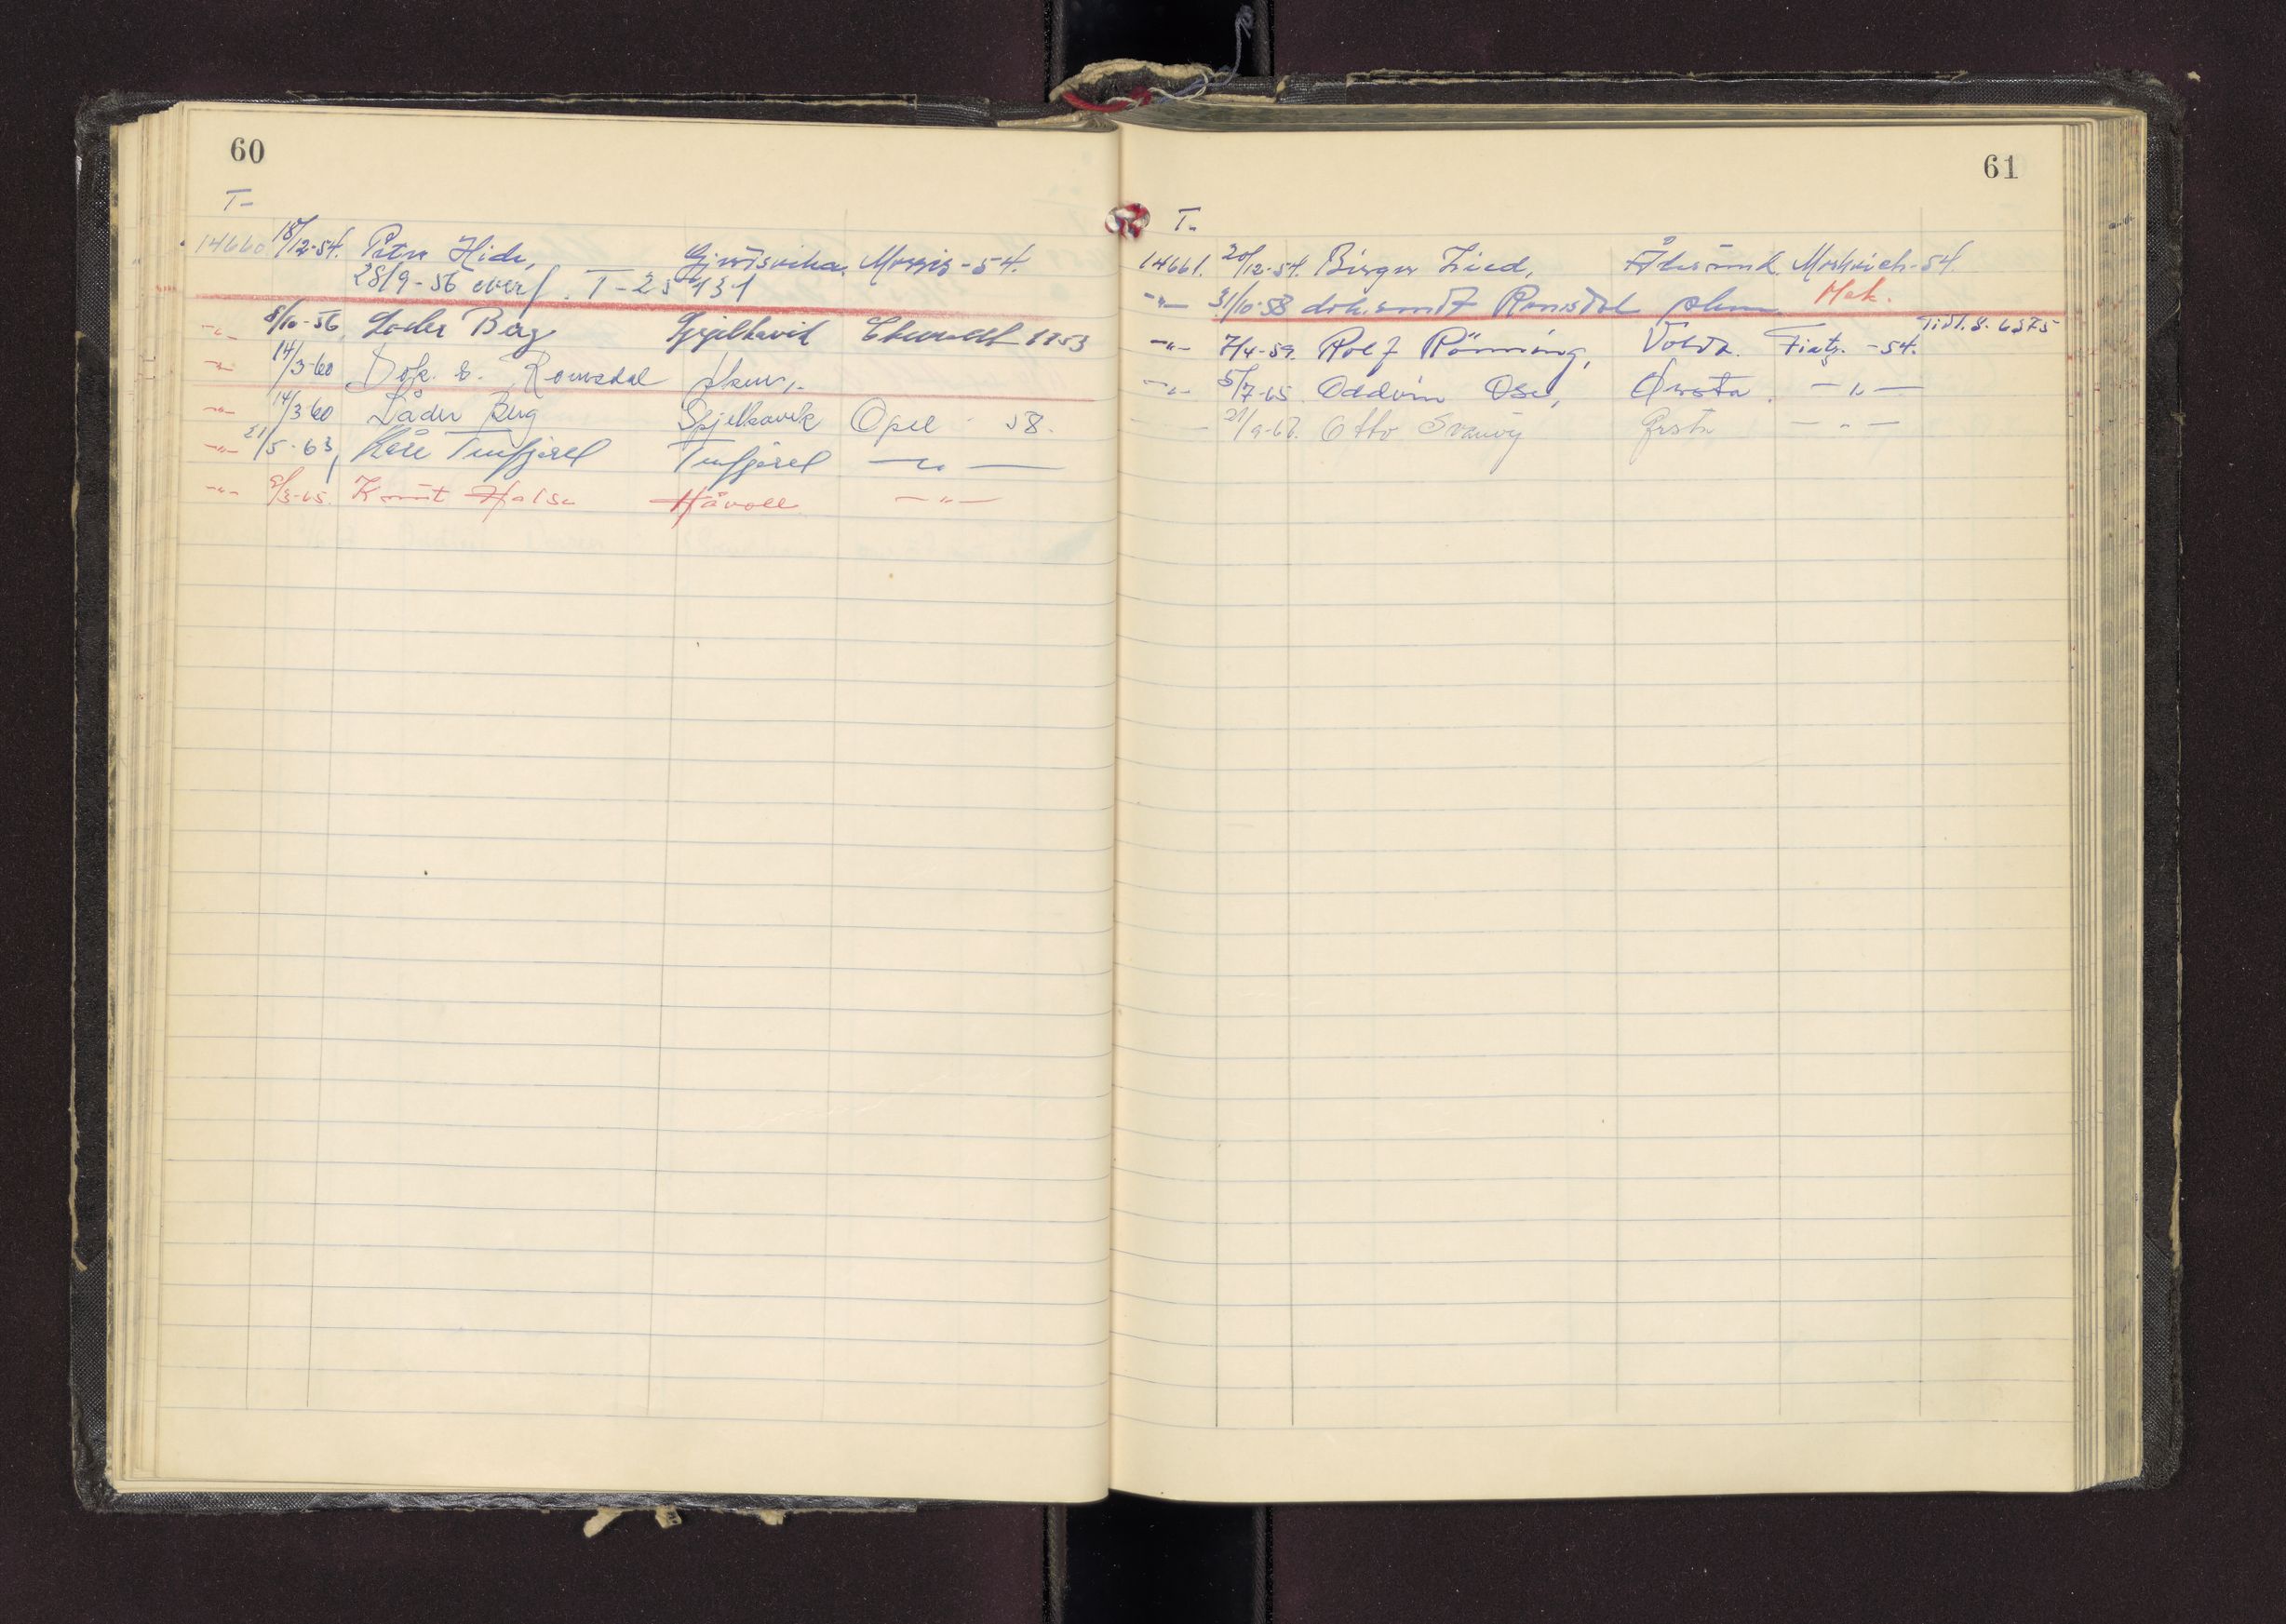 60
T-
14660 18/12-54. Peter Hide, Gjerdsvika. Morris - 54.
28/9-56 overf. T-25131
-"- 8/10-56 Lader Berg Spjelkavik Chevrolet 1953
-"- 14/3-60 Dok. s. Romsdal
-"- 14/3 60 Låder Berg Spjelkavik Opel 58.
-"- 21/5-63, Kåre Tusfjord -"-
-"- 2/3-65. Knut Halse Håvoll -"-
61
T-
14661. 20/12-54. Birger Lied, Ålesund. Moskvich-54.
-"- 31/10-58 dok. sendt Romsdal Mek.
-"- 7/4-59. Rolf Rönning, Volda. Fiat. -54. Tidl. S. 6375
-"- 5/7-65 Oddvin Ose, Ørsta. -"-
- 21/9-67. Otto Svanöy Ørsta -"-